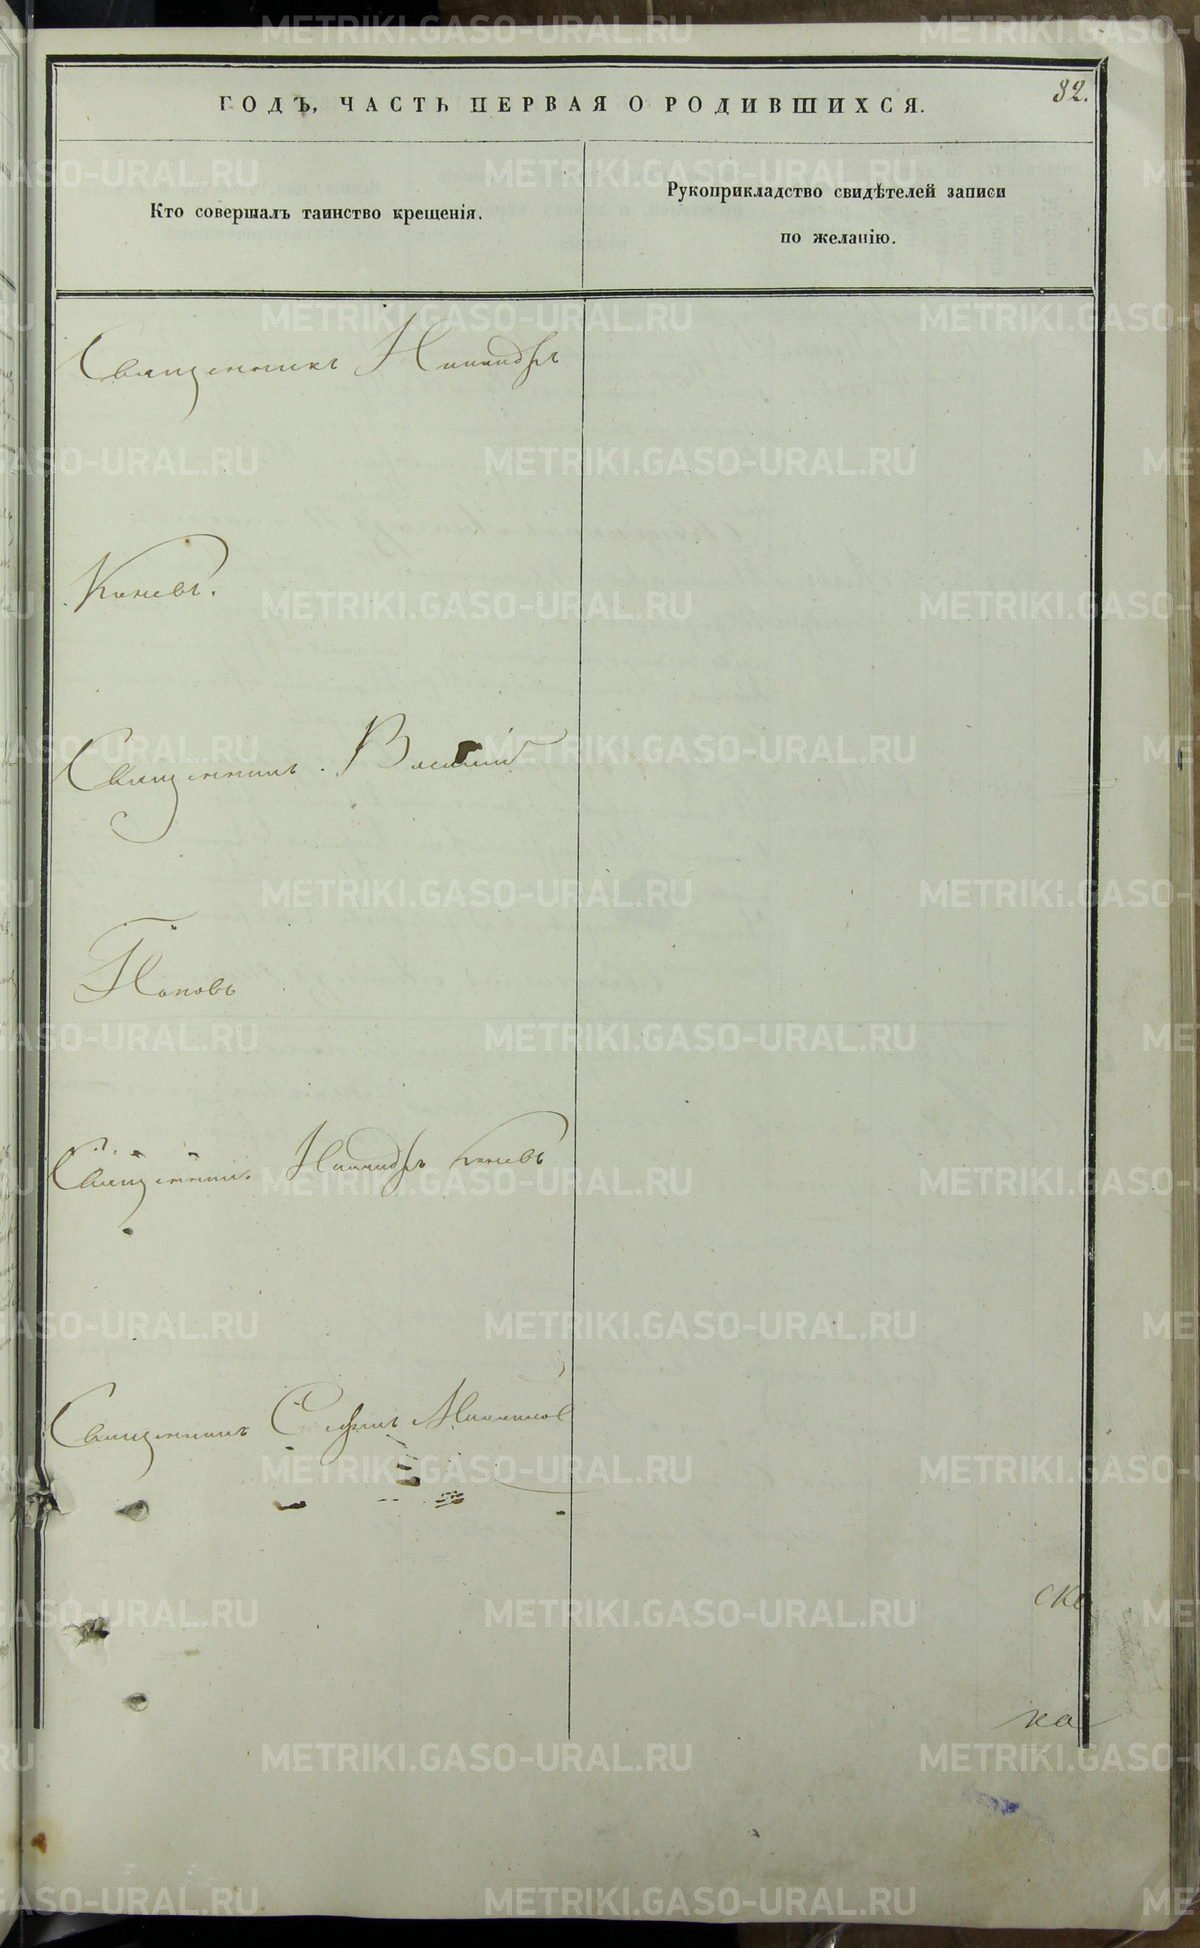 ГОДЪ, ЧАСТЬ ПЕРВАЯ О РОДИВШИХСЯ.
32.
Кто совершалъ таинство крещенія.
Рукоприкладство свидѣтелей записи
по желанію.
Священникъ Никандръ
Каневъ.
Священникъ Василий
Поповъ
Священник Никандръ Каневъ
Священникъ
ско
ка
METRIKI.GASO-URAL.RU